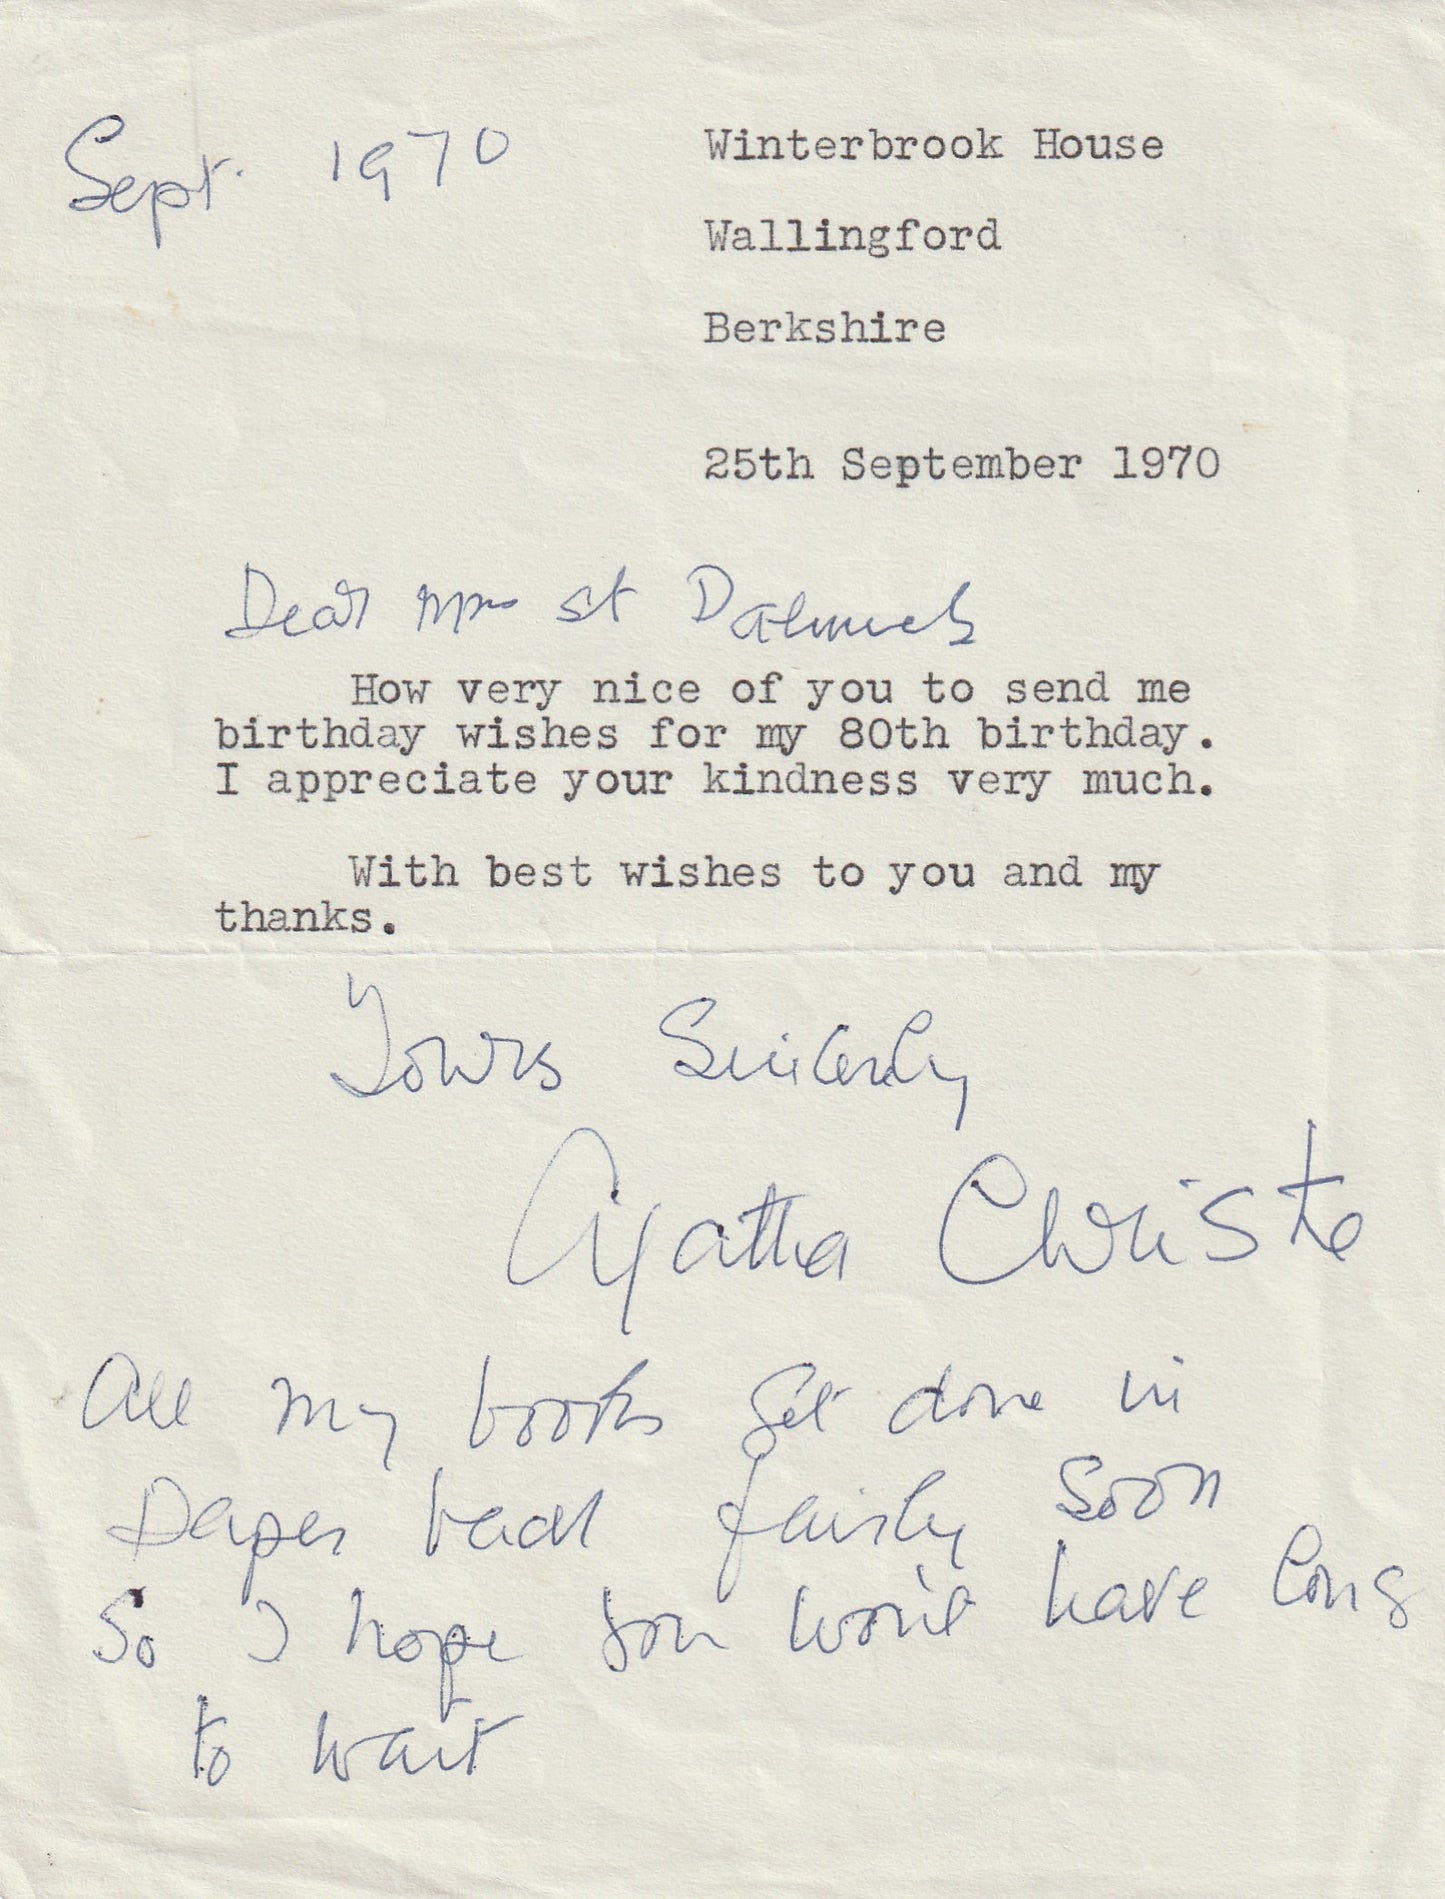 Sept. 1970
Winterbrook House
Wallingford
Berkshire
25th September 1970
Dear Mrs St
How very nice of you to send me
birthday wishes for my 80th birthday.
I appreciate your kindness very much.
With best wishes to you and my
thanks.
Yours Sincerely
Agatha Christie
All my books get done in
paper back fairly soon
So I hope you won't have long
to wait